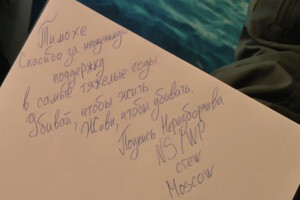 Тимохе
Спасибо за неоценимую
поддержку
в самые тяжелые годы.
Убивай, чтобы жить
Живи, чтобы убивать.
Подпись
NS/WP
crew
Moscow